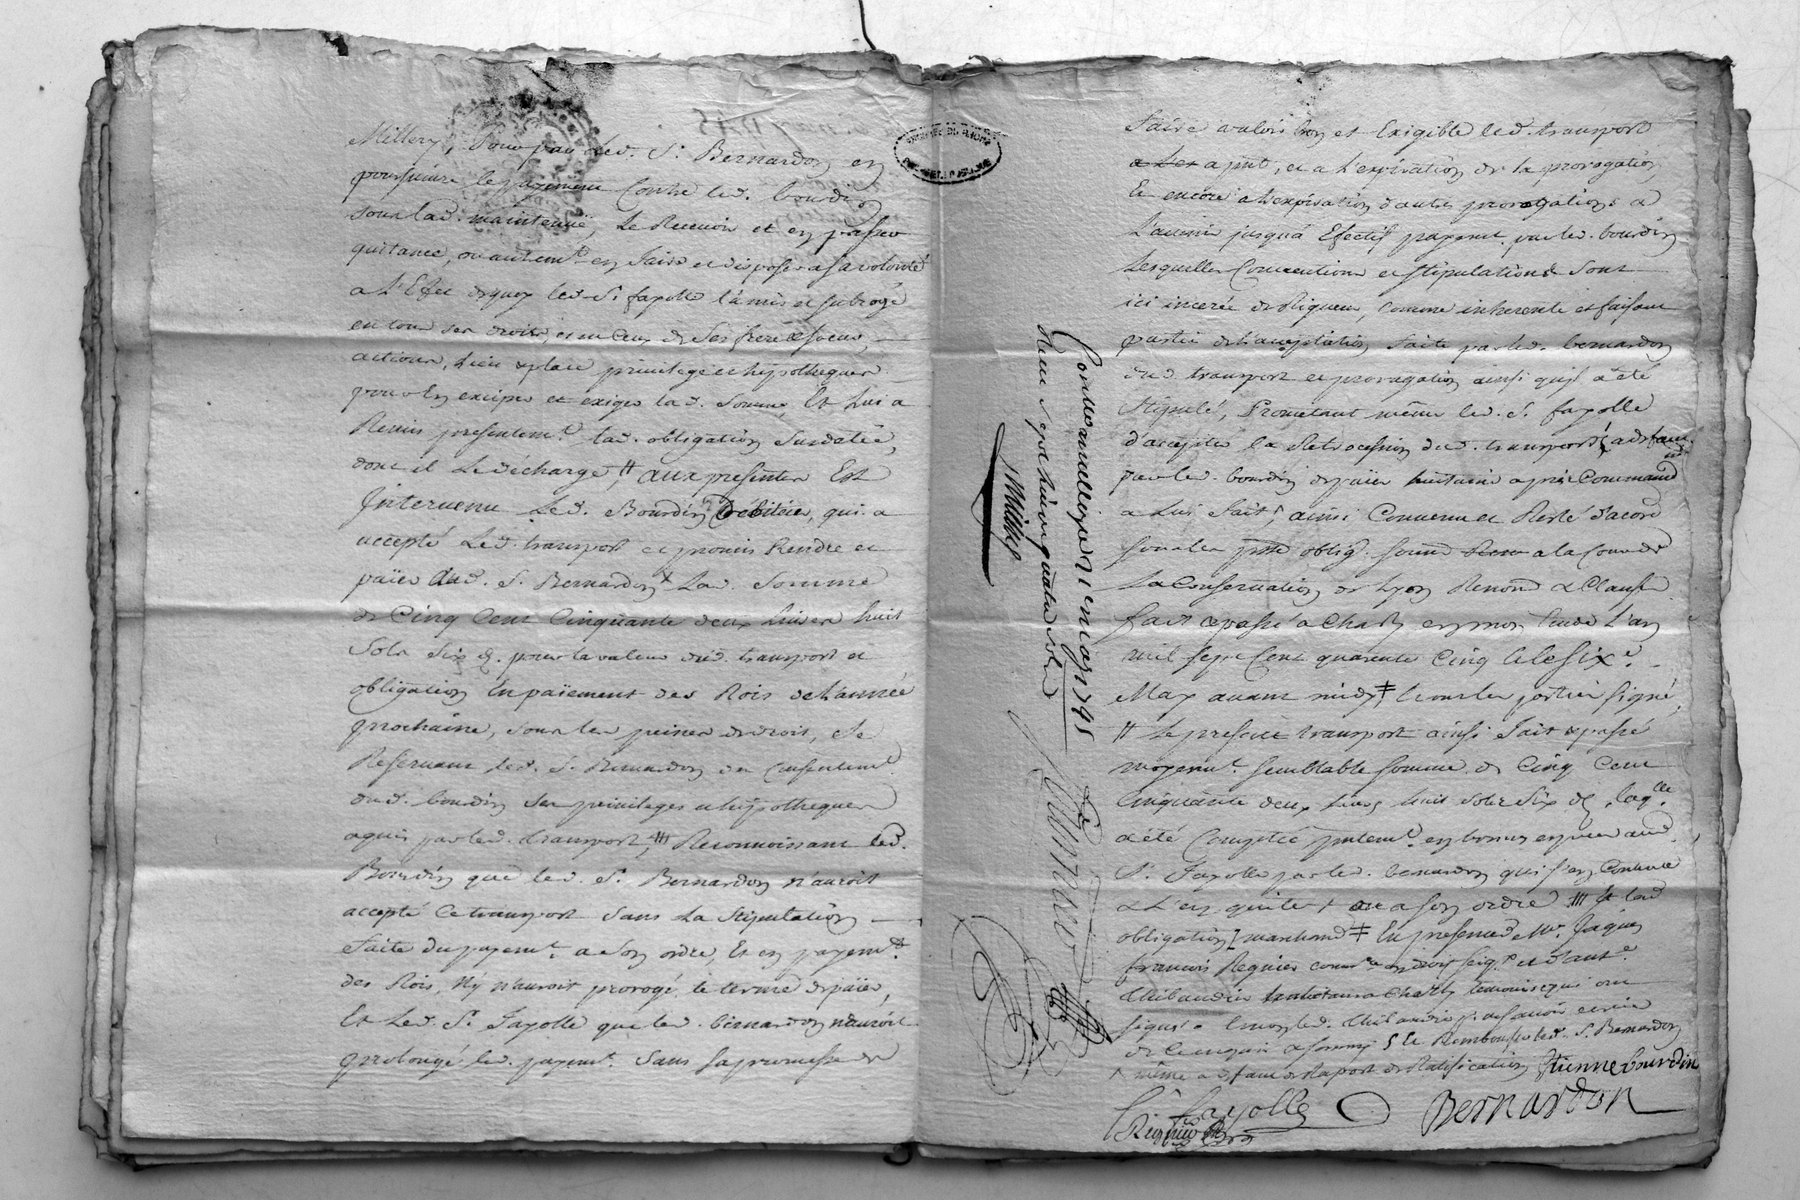 Millery, Pour par led. Sr. Bernardon en
poursuivre le payement Contre led. bourdin
sous lad. maintenüe, Le Recevoir et en passer
quitance, ou autremt. en faire et disposer a sa volonté
a L'Efet dequoy led. Sr. fayolle l'a mis et subrogé
en tous ses droits, et en Ceux de Ses frere et soeur,
actions, Lieu & place privilege et hypotheques
pour en exciper et exiger lad. Somme, Et Lui a
Remis presentemt. lad. obligation Susdatée,
dont il Le décharge, # aux presentes Est
Intervenu Led. Bourdin Débiteur, qui a
accepté Led. transport et promis Rendre et
païer aud. S. Bernardon + Lad. Somme
de Cinq Cent Cinquante deux Livres huit
Sols Six d. pour la valeur dud. transport et
obligation En païement des Rois de L'année
prochaine, sous les peines de droit, Se
Reservant led. S. Bernardon du Consentemt.
dud. bourdin Ses privileges et hypotheques
aquis par led. transport, Reconnoissant led.
Bourdin que led. S. Bernardon n'auroit
accepté Ce transport Sans La Stipulation
faite du payemt. a Son ordre, Et en payemt.
des Rois, N'y n'auroit prorogé le terme de païer,
Et Led. Sr. Fayolle que led. bernardon n'auroit
prolongé led. payemt. Sans Sa promesse de
faire valoir bon et Exigible led. transport
a pnt, et a L'expiration de la prorogation
Et encore a L'expiration d'autres prorogations a
L'avenir jusqu'a Efectif payemt. par led. bourdin
Lesquelles Conventions et Stipulations Sont
ici incerée de Rigueur, comme inherente et faisant
partie de L'acceptation faite par led. bernardon
dud. transport et prorogation ainsi qu'il a été
Stipulé, Prometant même led. S. fayolle
d'accepter la Retrocession dud. transport a defaut
par led. bourdin de païer huitaine après Command
a Lui fait, ainsi Convenu et Resté d'acord
sous les oblig. a la Cour de
La Conservation de Lyon Renond. & Clause
fait et passé a Charly en mon Etude L'an
mil Sept Cent quarente Cinq et le Six e.
May avant midy les parties signé,
# Le present transport ainsi fait & passé
moyennt. semblable somme de Cinq Cent
Cinquante deux Livres huit Sols Six d. laqlle.
a été Comptée pntemt. en bonnes especes aud.
Sr. Fayolle par led. bernardon qui s'en Contente
& L'en quite + ou a son ordre Et lad
obligation [marchand ‡ En presence de Mr. Jaques
francois Regnier et d'Ant.e
Thibaudier a Charly temoins qui ont
signé led. Thibaudier
de Ce enquis & sommé le Rembourser led. S. Bernardon
même a defaut de Raport de Ratification Etienne bourdin
fayolle Bernardon
Regnier
Controllé a le 11 may 1745
Reçu Sept Livres quatre sols